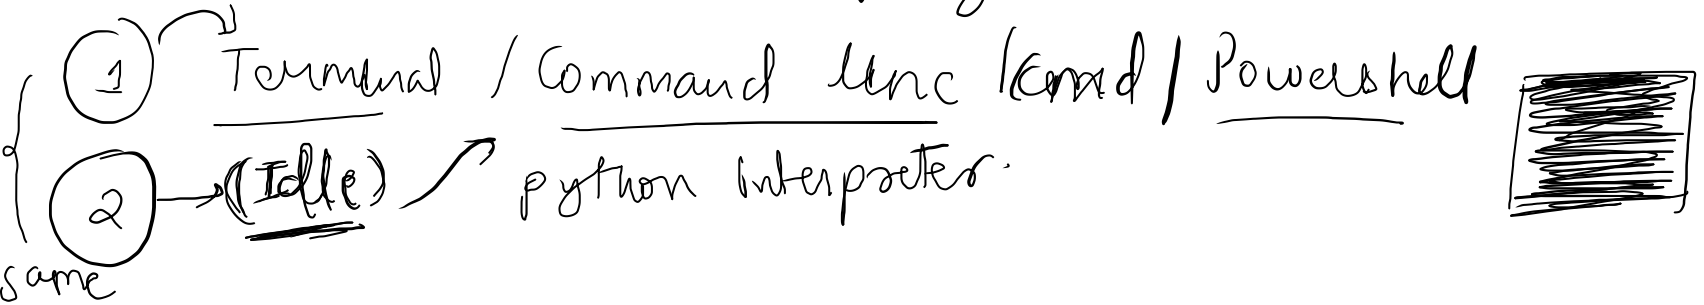 1 Terminal / Command line / cmd / Powershell
2 (Idle) python interpreter.
same